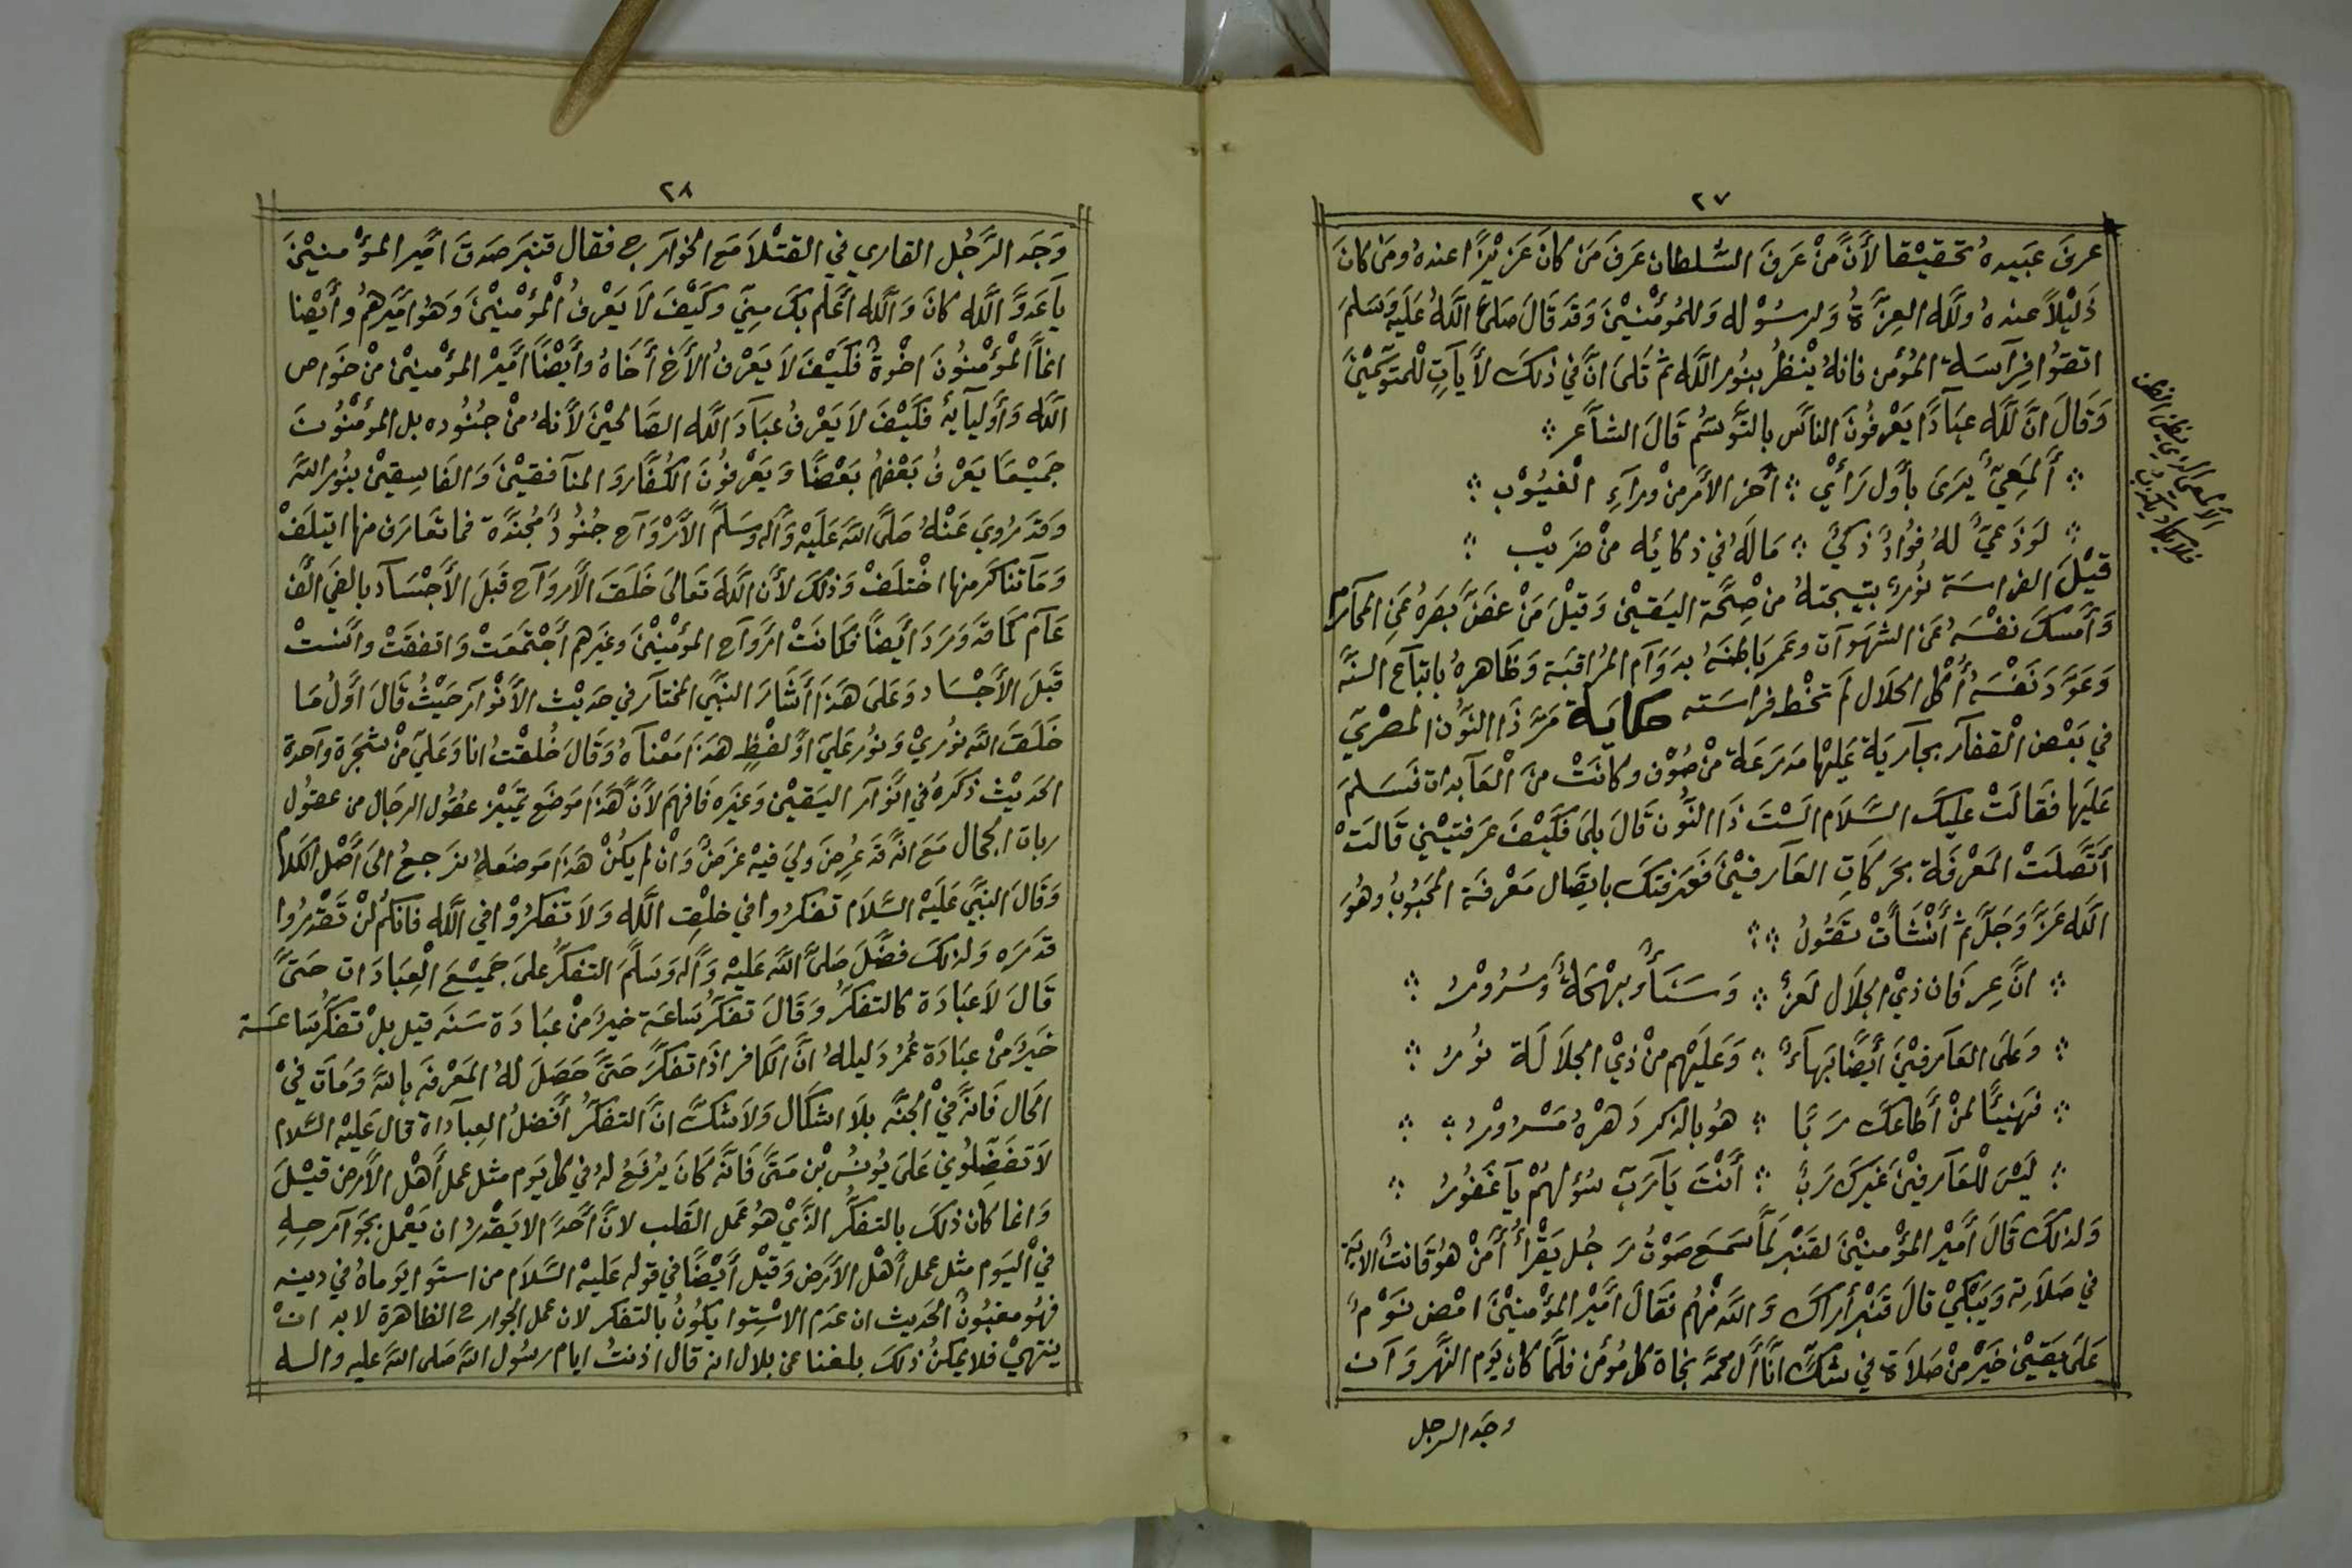 ٢٧
عرف عبيده تحقيقا لأنّ منْ عَرفَ السّلطان عَرفَ مَن كانَ عَزيزًا عندهُ ومَن كانَ
ذَليْلاً عندهُ ولله العِزّةُ وَلرسُوْله وَللمُؤمْنيْنَ وَقدَ قَالَ صَلىَّ اللهُ عَلَيه وَسَلمَ
اتقوُا فِرآسَة المُؤمن فانهُ ينْظُر بنوُر الله ثم تَلىَ انَّ في ذلكَ لأيآتٍ للْمتوَسّميْنَ
وَقَالَ انَّ لله عبَادًا يَعْرفُونَ الناسَ بالتَّوَسّم قَالَ الشاَعر
أَلمَعِيّ يَرَىَ بأوّل رَأيْ أخرَ الأمَرمنْ ورآءِ الْغيُوْب
لَوْذَعيّ لهُ فوُادٌ ذكيّ مَا لَهُ في ذكائه منْ ضَريْب
الألمعي الذي يظن الظن
فلا يكاد يكذب
قيْلَ الفراسَة نوُرٌ نتيجتهُ من صِحَّة اليَقيْن وَقيْلَ مَنْ غضَّ بَصَرهُ عَنِ المحآرم
وَأمسكَ نفْسَهُ عَن الشهَوآت وعَمر بَاطنَهُ بدَوَآم المُراقبَة وَظَاهرهُ باتبآع السنَّه
وَعَوّدَ نَفْسَهُ أكْل الحلاَل لمَ تخْط فراسَته حكايَة مَرّ ذَا النوُّن المصْريّ
في بَعْض الْقفآر بجآريَة عَليْها مَدرَعَة منْ صُوْف وكانَتْ منَ الْعَآبدات فَسَلمَ
عَلَيها فقَالَتْ عليكَ السَّلاَم الَسْتَ ذَا النُّون قالَ بلىَ فَكَيْفَ عَرفتيْني قَالَتْ
أتَّصلَتْ المَعْرفَة بحَركَاتِ العَآرفيْنَ فَعَرفتكَ باتِصَال مَعْرفَة المحَبُوبُ وهُوَ
الله عَزّ وَجَلَّ ثم أنْشَأتْ تقَوُلُ
انَّ عِرفَان ذيْ الجلاَل لَعزُّ وَسَنَاءٌ وبهْجَةٌ وَسُرُوْرُ
وَعَلىَ العَآرفيْنَ أيضًا بَهآءٌ وَعَليْهم منْ ذيْ الجلاَلَة نوُرُ
فهَنيئًا لمنْ أطاعكَ رَبَّا هوُ بالذكر دَهْرهُ مَسْرُوْرُ
ليْسَ للْعَآرفيْنَ غَيركَ رَبٌّ أنْتَ يَآرَبّ سؤلهُمْ يآ غَفوُرُ
وَلذلكَ قَالَ أميْر المؤْمنيْنَ لقَنبْر لَمّا سَمعَ صَوْتُ رَجُل يَقْرأُ أمّنْ هوُ قَانتٌ الايَة
في صَلاَته وَيَبْكيْ قالَ قَنبْر أراكَ وَالله منْهُم فقَالَ أميْر المؤْمنيْنَ امْض نوَمٌ
عَلىَ يَقيْن خَيرٌ منْ صَلاَة في شكّ انّا أل محمّد نجاة كل مُؤمن فلمّا كان يَوم النهَّروَآن
وجَد الرجل
٢٨
وَجَد الرَّجُل القاري في القتْلاَ مَع الخوآرج فقال قَنبَر صَدقَ أميْر المؤْمنينَ
يآعَدوَّ الله كانَ وَالله أعْلم بكَ مِنيّ وكَيْفَ لاَ يَعْرفُ الْمؤْمنيْنَ وَهوُ اميْرهمُ وأيضْا
انمَا الْمؤْمنوُنَ اخْوةٌ فكَيَفَ لاَ يَعْرفُ الأَخ أخَاهُ وأيضْاً أميْر المؤْمنيْن منْ خوَاص
الله وَأوْليآيهُ فكَيْفَ لاَ يَعْرفُ عبَآدَ الله الصَّالحيْنَ لأنهُ منْ جنُوُده بل المؤمْنُونَ
جَميْعًا يَعْرفُ بَعْضُهُم بَعْضًا وَيَعْرفوُنَ الكُفَّار وَالمنآفقيْنَ وَالفَاسِقيْن بنُور الله
وَقدَ رُويَ عَنْهُ صَلىَّ اللهَ عَلَيْهِ وَآله وسَلمَّ الأرْوَآح جنُوُدٌ مُجَندَّة فما تعَارَف منها ايتلَفْ
وَمَآ تناكرَ منها اخْتلَفْ وَذلكَ لأن الله تعَالىَ خَلَقَ الأروَآح قبَلَ الأجْسَآد بالفَيْ الْف
عَآم كمَا قدَ وَرَدَ أيضاً فكَانَتْ ارْوآح المؤْمنْيْنَ وغيَرهم أجْتمَعَتْ وَاتفقَتْ وانسَتْ
قبَلَ الأجْسَاد وَعَلىَ هَذَا أشَارَ النبيّ المختآر في حَديْث الأنْوآر حَيْثُ قَالَ أوّلُ مَا
خَلَقَ الله نوُريْ وَنوُر عَليّ اوّ لفْظٍ هذَا مَعْناهُ وَقَالَ خُلقْتُ انا وَعَليّ منْ شجَرَة وآحدة
الحديْث ذكَرهُ في انْوآر اليَقيْن وَغيرَه فَافهَم لأنّ هَذَا موَضَع تميْيز عقوُل الرجَال من عقوُل
ربات الحجال مَعَ انهَّ قدَ عُرضَ وليَ فيْه غرَضٌ وَانْ لم يكُنْ هَذَا موَضعَهُ نرَجعُ الىَ أصْل الكلاَم
وَقَالَ النبَّي عَلَيْه السَّلاَم تفكرُوا في خلْقِ الله وَلاَ تفكرُوْا في الله فانكمُ لنْ تَقْدرُوا
قدَرَه وَلذلكَ فضَّلَ صَلىَّ الله عَليْه وَآله وَسَلمَ التفكرُ علىَ جَميْعَ الْعِبَادَات حَتىَّ
قَالَ لاَ عبَادَة كالتفكرُ وَقَالَ تفكرُ سَاعَة خيرٌ منْ عبَادَة سَنَه قيل بلْ تفكرُ سَاعَة
خَيرٌ منْ عبَادَة عُمرٌ دَليلهُ انَّ الكافر اذَا تفكرَ حَتىَّ حَصَلَ لهُ المَعْرفَه بالله وَمَات فيْ
الحَال فَانهَّ فيْ الجنَّه بلاَ اشكَال وَلاَ شكَّ انَّ التفكرُ أفْضلُ العِبآداة قال عَليْه السَّلام
لاَ تفضِّلوُني عَلىَ يوُنسُ بْن مَتىَّ فَانهَّ كَانَ يُرفَعُ لهُ في كل يَوم مثل عمل أهْل الأرض قيْلَ
وَانما كان ذلكَ بالتفكرُ الذَّيْ هوُ عَمل القَلب لأنَّ أحَدًا لا يَقْدرُ ان يَعْمل بجَوآرحِهِ
فيْ اليَوم مثل عمل أهْل الأرَض وَقيْل أيْضًا في قوله عَليْه السَّلاَم من استَوا يَوماهُ في دينه
فهُو مغبُونٌ الحَديث ان عَدَم الاسْتِوا يكوُنُ بالتفكر لان عمل الجوارح الظاهرة لابد ان
ينتهيْ فلا يمْكنُ ذلكَ بلغنا عن بلال انه قال اذنتُ ايام رسُول الله صَلى الله عليه والـه